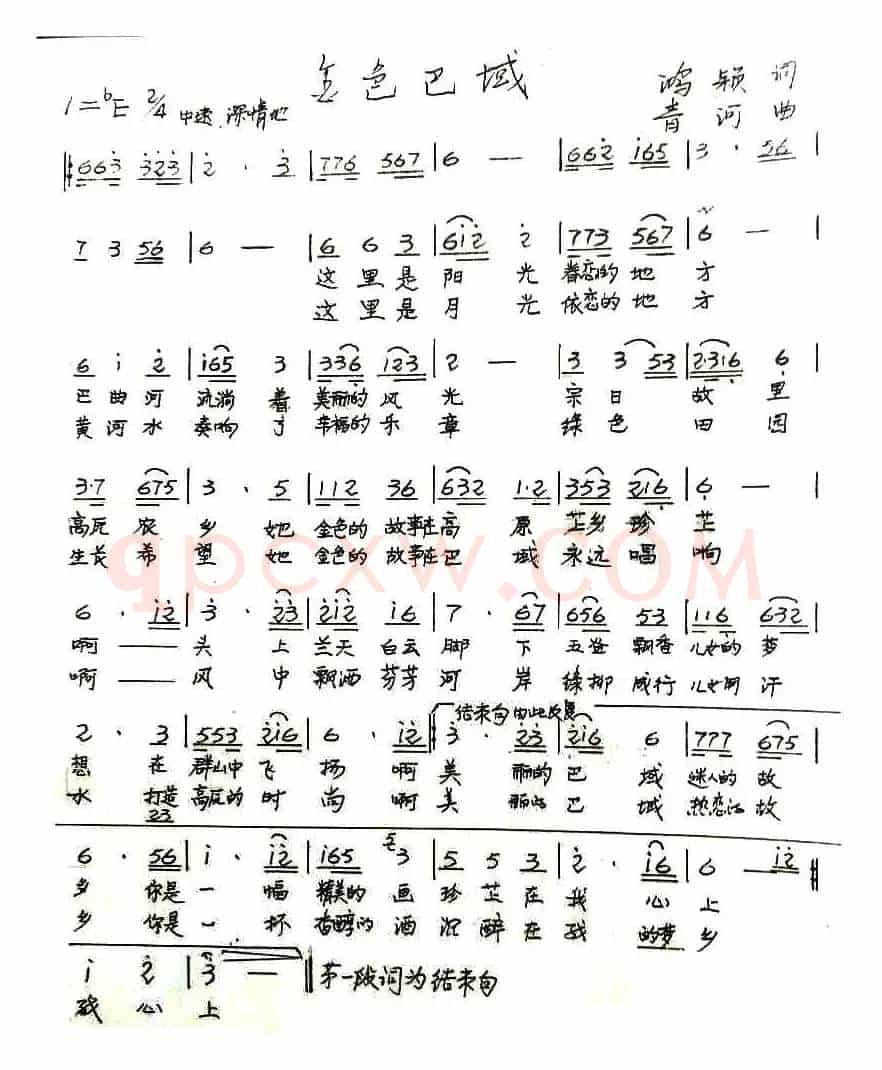 金色巴域
鸿颖 词
青河 曲
1=♭E 2/4 中速 深情地
663 323 | 2 · 3 | 776 567 | 6 — | 662 165 | 3 · 56 |
7 3 56 | 6 — | 6 6 3 | 612 2 | 773 567 | 6 — |
这里是阳光眷恋的地方
这里是月光依恋的地方
6 1 2 | 165 3 | 336 123 | 2 — | 3 3 53 | 2·316 6 |
巴曲河流淌着美丽的风光 宗日故里
黄河水奏响了幸福的乐章 绿色田园
3·7 675 | 3 · 5 | 112 36 | 632 1·2 | 353 216 | 6 — |
高瓦农乡她金色的故事在高原芷乡珍芷
生长希望她金色的故事在巴域永远唱响
6 · 12 | 3 · 23 | 212 16 | 7 · 67 | 656 53 | 116 632 |
啊——头上兰天白云脚下五谷飘香儿女的梦
啊——风中飘洒芬芳河岸绿柳成行儿女用汗
结束句由此反复
2 · 3 | 553 216 | 6 · 12 | 3 · 23 | 216 6 | 777 675 |
想在群山中飞扬啊美丽的巴域迷人的故
水打造高瓦的时尚啊美丽的巴域热恋的故
23
6 · 56 | 1 · 12 | 165 3 | 5 5 3 | 2 · 16 | 6 12 ‖
5
乡你是一幅精美的画珍芷在我心上
乡你是一杯香醇的酒沉醉在我的梦乡
1 2 | 3 — ‖ 第一段词为结束句
我心上
qpcxw.COM